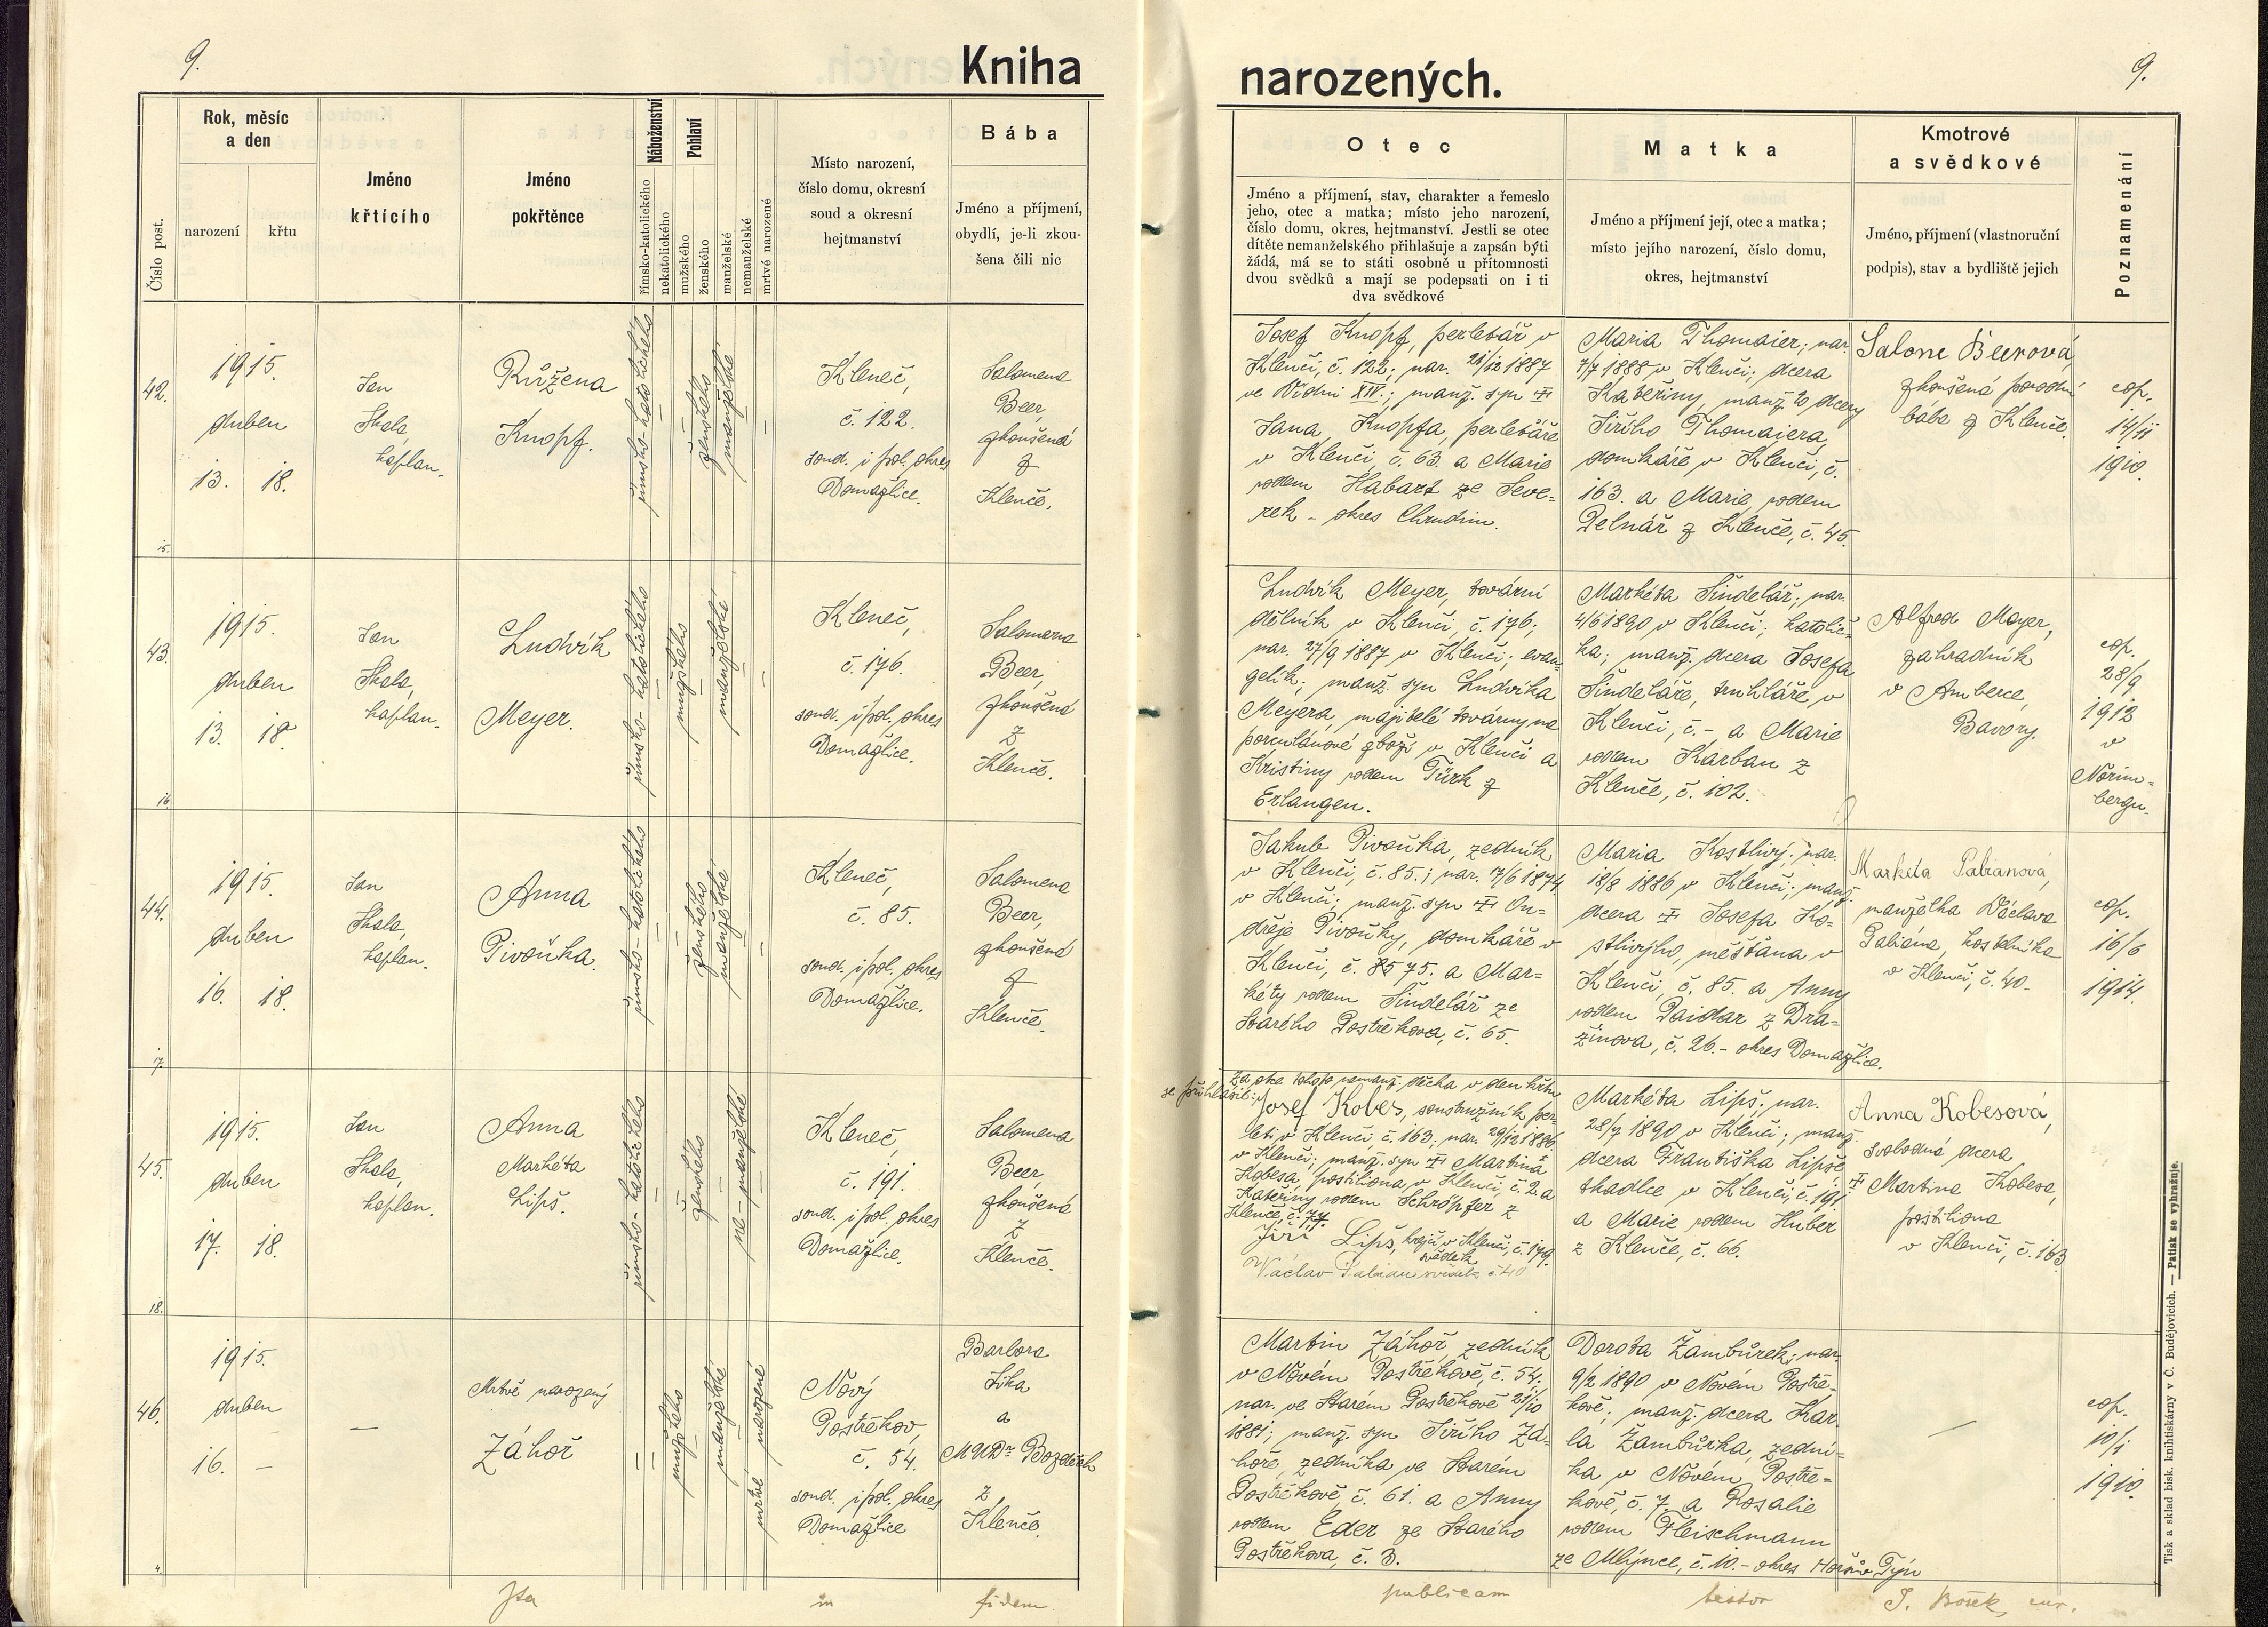 9.
Kniha
Rok, měsíc
a den
narození
křtu
Číslo post.
Jméno
křtícího
Jméno
pokřtěnce
Náboženství
římsko-katolického
nekatolického
Pohlaví
mužského
ženského
manželské
nemanželské
mrtvé narozené
Místo narození,
číslo domu, okresní
soud a okresní
hejtmanství
Bába
Jméno a příjmení,
obydlí, je-li zkou-
šena čili nic
42.
1915.
duben
13. 18.
Jan
Skala,
kaplan.
Růžena
Knopf.
římsko-katolického
ženského
manželské
Kleneč,
č. 122.
soud. i pol. okres
Domažlice.
Salomena
Beer,
zkoušená
z
Klenče.
15.
43.
1915.
duben
13. 18.
Jan
Skala,
kaplan.
Ludvík
Meyer.
římsko-katolického
mužského
manželské
Kleneč,
č. 176.
soud. i pol. okres
Domažlice.
Salomena
Beer,
zkoušená
z
Klenče.
16.
44.
1915.
duben
16. 18.
Jan
Skala,
kaplan.
Anna
Pivoňka.
římsko-katolického
ženského
manželské
Kleneč,
č. 85.
soud. i pol. okres
Domažlice.
Salomena
Beer,
zkoušená
z
Klenče.
17.
45.
1915.
duben
17. 18.
Jan
Skala,
kaplan.
Anna
Markéta
Lipš.
římsko-katolického
ženského
ne-manželské
Kleneč,
č. 191.
soud. i pol. okres
Domažlice.
Salomena
Beer,
zkoušená
z
Klenče.
18.
46.
1915.
duben
16. –
—
Mrtvě narozený
Záhoř
mužského
manželské
mrtvé narozené
Nový
Postřekov,
č. 54.
soud. i pol. okres
Domažlice
Barbora
Jíka
a
MUDr Bozděch
z
Klenče.
4.
Ita in fidem
narozených.
9.
Otec
Jméno a příjmení, stav, charakter a řemeslo
jeho, otec a matka; místo jeho narození,
číslo domu, okres, hejtmanství. Jestli se otec
dítěte nemanželského přihlašuje a zapsán býti
žádá, má se to státi osobně u přítomnosti
dvou svědků a mají se podepsati on i ti
dva svědkové
Matka
Jméno a příjmení její, otec a matka;
místo jejího narození, číslo domu,
okres, hejtmanství
Kmotrové
a svědkové
Jméno, příjmení (vlastnoruční
podpis), stav a bydliště jejich
Poznamenání
Josef Knopf, perleťář v
Klenči, č. 122; nar. 21/12 1887
ve Vídni XIV.; manž. syn †
Jana Knopfa, perleťáře
v Klenči č. 63. a Marie
rodem Habart ze Seve-
rek – okres Chrudim.
Maria Thomaier; nar.
7/7 1888 v Klenči; dcera
Kateřiny, manž. to dcery
Jiřího Thomaiera,
domkáře v Klenči, č.
163. a Marie rodem
Pelnář z Klenče, č. 45.
Salome Beerová,
zkoušená porodní
bába z Klenče.
cop.
14/11
1910.
Ludvík Meyer, tovární
dělník v Klenči, č. 176;
nar. 27/9 1887 v Klenči; evan-
gelík; manž. syn Ludvíka
Meyera, majitele továrny na
porculánové zboží v Klenči a
Kristiny rodem Türk z
Erlangen.
Markéta Šindelář; nar.
4/6 1890 v Klenči; katolič-
ka; manž. dcera Josefa
Šindeláře, truhláře v
Klenči, č. – a Marie
rodem Karban z
Klenče, č. 102.
Alfred Mayer,
zahradník
v Amberce,
Bavory.
cop.
28/9
1912
v
Norim-
bergu.
Jakub Pivoňka, zedník
v Klenči, č. 85.; nar. 7/6 1874
v Klenči; manž. syn † On-
dřeje Pivoňky, domkáře v
Klenči, č. 85 75. a Mar-
kéty rodem Šindelář ze
Starého Postřekova, č. 65.
Maria Kostlivý; nar.
18/8 1886 v Klenči; manž.
dcera † Josefa Ko-
stlivýho, měšťana v
Klenči, č. 85. a Anny
rodem Paidar z Dra-
žinova, č. 26. – okres Domažlice.
Markéta Fabianová,
manželka Václava
Fabiána, kostelníka
v Klenči, č. 40.
cop.
16/6
1914.
Za otce tohoto nemanž. děcka v den křtu
se přihlásil:
Josef Kobes, soustružník per-
leti v Klenči č. 163; nar. 29/12 1886
v Klenči; manž. syn † Martina
Kobesa, postiliona v Klenči, č. 2. a
Kateřiny rodem Schröpfer z
Klenče, č. 77.
Jiří Lipš, krejčí v Klenči, č. 179.
svědek
Václav Fabian svědek č. 40
Markéta Lipš; nar.
28/7 1890 v Klenči; manž.
dcera Františka Lipše,
tkadlce v Klenči, č. 191.
a Marie rodem Huber
z Klenče, č. 66.
Anna Kobesová,
svobodná dcera
† Martina Kobesa,
postiliona
v Klenči, č. 163
Martin Záhoř, zedník
v Novém Postřekově, č. 54.
nar. ve Starém Postřekově 21/10
1881; manž. syn Jiřího Zá-
hoře, zedníka ve Starém
Postřekově, č. 61. a Anny
rodem Eder ze Starého
Postřekova, č. 3.
Dorota Žambůrek; nar.
9/2 1890 v Novém Postře-
kově; manž. dcera Kar-
la Žambůrka, zední-
ka v Novém Postře-
kově, č. 7. a Rosalie
rodem Fleischmann
ze Mlýnce, č. 10. – okres Horšův Týn
—
cop.
10/1
1910.
publicam testor J. Bošek,
Tisk a sklad bisk. knihtiskárny v Č. Budějovicích. — Patisk se vyhražuje.